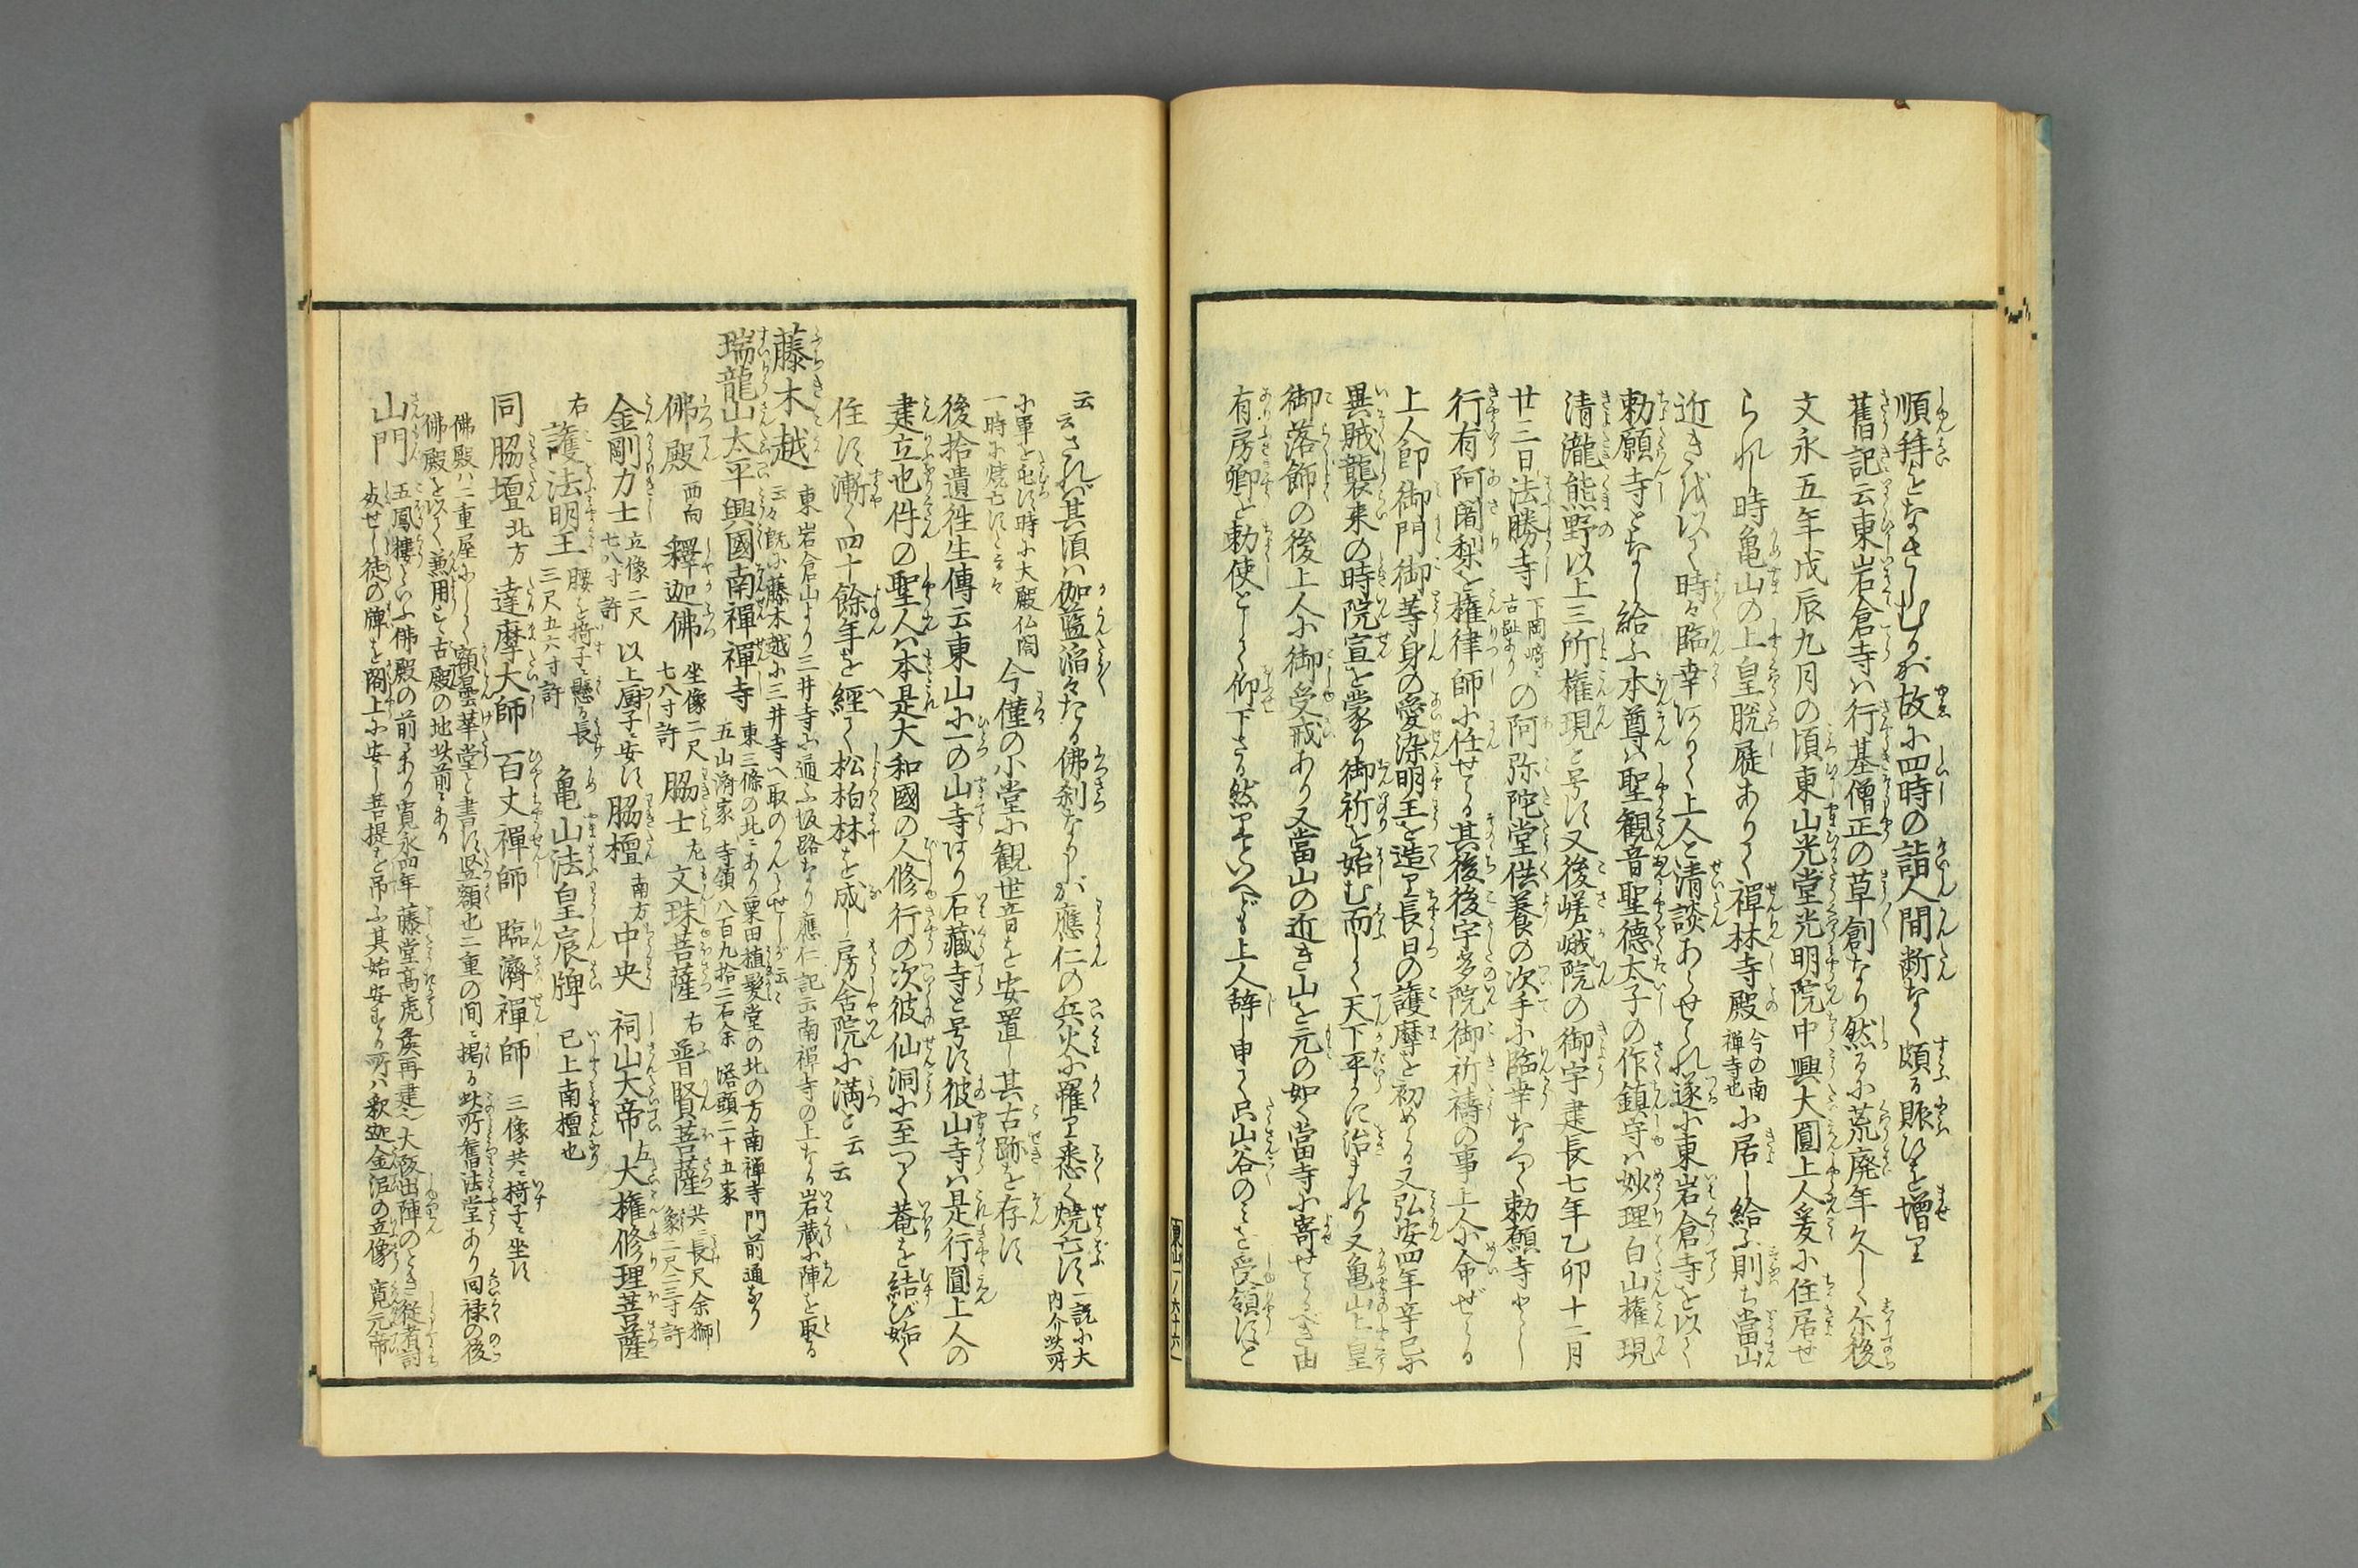 順拝をなさしむるが故に四時の詣人間断なく頗る賑ひを増せり
舊記云東山岩倉寺ハ行基僧正の草創なり然るに荒廃年久しく尓後
文永五年戊辰九月の頃東山光堂光明院中興大圓上人爰に住居せ
られし時亀山の上皇脱屣ありて禅林寺殿今の南禅寺也に居し給ふ則ち當山
近きを以て時々臨幸ありて上人と清談あらせられ遂に東岩倉寺を以て
勅願寺となし給ふ本尊ハ聖観音聖徳太子の作鎮守ハ妙理白山権現
清瀧熊野以上三所権現と号す又後嵯峨院の御宇建長七年乙卯十二月
廿三日法勝寺下岡崎ニ古趾ありの阿弥陀堂供養の次手に臨幸なつて勅願寺とし
行有阿闍梨を権律師に任せらる其後後宇多院御祈祷の事上人に命ぜらる
上人即御門御等身の愛染明王を造り長日の護摩を初めらる又弘安四年辛巳に
異賊襲来の時院宣を蒙り御祈を始む而して天下平かに治まれり又亀山上皇
御落飾の後上人に御受戒あり又當山の近き山を元の如く當寺に寄せらるべき由
有房卿を勅使として仰下さる然りといへども上人辞し申て只山谷のミを受領すと
東山一ノ六十六
云云されバ其頃ハ伽藍滔々たる佛刹なりしが應仁の兵火に罹り悉く焼亡す一説に大内介此所
に軍を屯す時に大殿仏閣一時に焼亡すと云々今僅の小堂に観世音を安置し其古跡を存す
後拾遺往生傳云東山に一の山寺あり石藏寺と号す彼山寺ハ是行圓上人の
建立也件の聖人ハ本是大和國の人修行の次彼仙洞に至つて菴を結び始て
住す漸く四十餘年を經て松柏林を成し房舎院に満と云云
藤木越東岩倉山より三井寺に通ふ坂路なり應仁記云南禪寺の上なる岩蔵に陣を取る云々既に藤木越に三井寺へ取のかんとせしが云云
瑞龍山太平興國南禪寺東三條の北ニあり粟田植髪堂の北の方南禅寺門前通なり五山濟家寺領八百九拾二石余塔頭二十五家
佛殿西向釋迦佛坐像二尺七八寸許脇士左文珠菩薩右普賢菩薩共ニ長尺余獅象二尺三寸許
金剛力士立像二尺七八寸許以上厨子ニ安す脇檀南方中央祠山大帝左大権修理菩薩
右護法明王腰を椅子ニ懸る長三尺五六寸許亀山法皇宸牌已上南檀也
同脇壇北方達摩大師百丈禪師臨濟禪師三像共ニ椅子ニ坐す
佛殿ハ二重屋にして額曇華堂と書す竪額也二重の間ニ掲る此所舊法堂あり回禄の後
佛殿を以て兼用とす古殿の地此前ニあり
山門五鳳樓といふ佛殿の前にあり寛永四年藤堂高虎矦再建ス大阪出陣のとき従者討
死せし徒の牌を閣上に安し菩提を吊ふ其始安する所ハ釈迦金泥の立像寛元帝